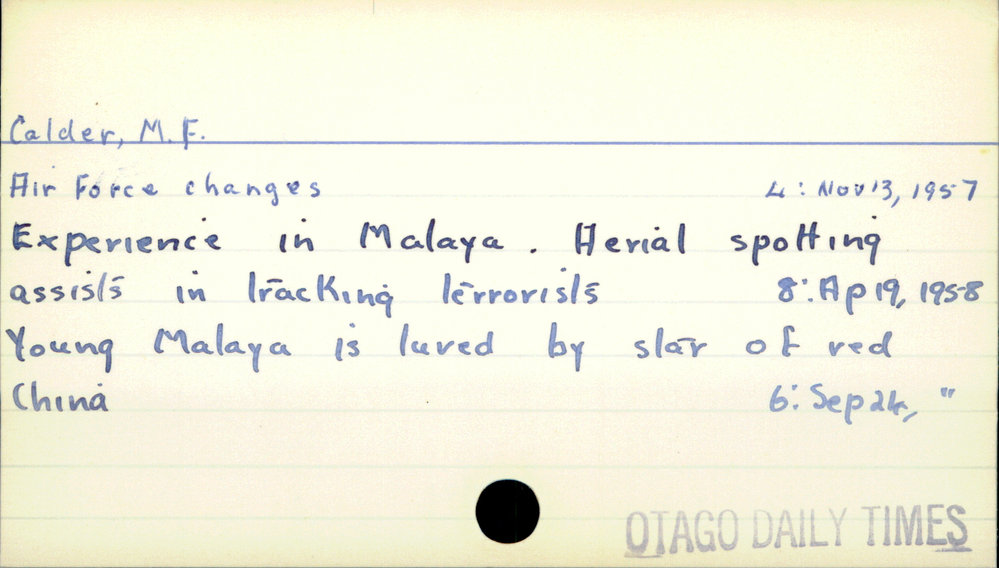 Calder, M. F.
Air Force changes 4: Nov 13, 1957
Experience in Malaya. Aerial spotting
assists in tracking terrorists 8: Ap 19, 1958
Young Malaya is lured by star of red
China 6: Sep 24, "
OTAGO DAILY TIMES